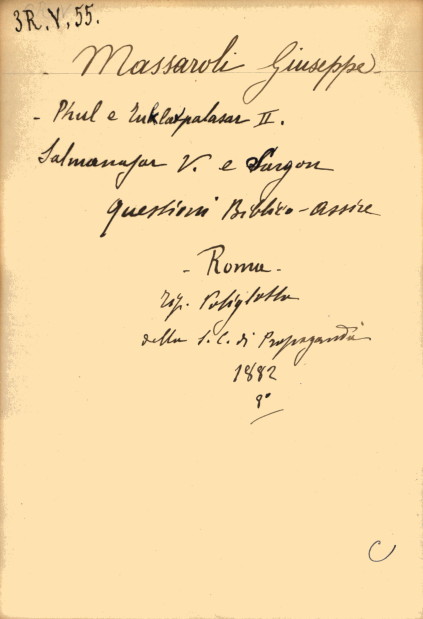 3R.V.55.
- Massaroli Giuseppe -
- Phul e Tuklatpalasar II.
Salmanasar V. e Sargon
Questioni Biblico-Assire
- Roma -
Tip. Poliglotta
della S. C. di Propaganda
1882
8°
C